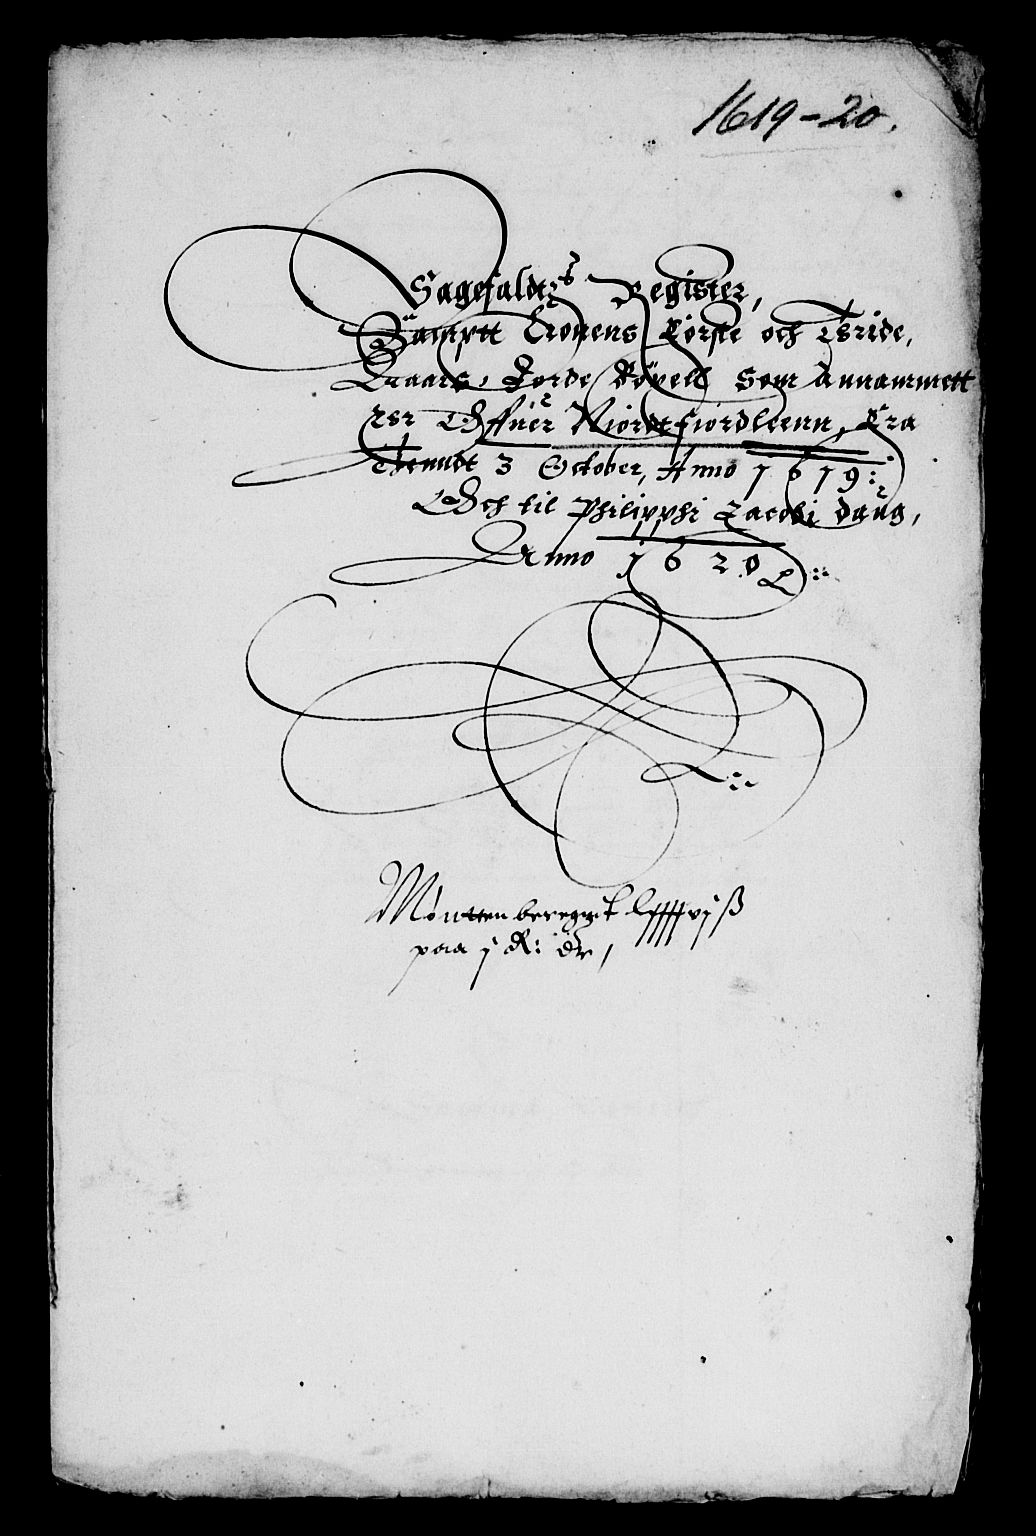 1619-20.
Sagefaldtz Register,
Sampt Cronens Förste och Tride,
Aars, Jorde Böxell Som Annammett
err Offuer Niordtfiordlenn, Fra
Thendt 3 October, Anno 1619:
Och til Philipphi Jacobi Daug,
Anno 1620
Møntten beregnit
paa j R: dr,